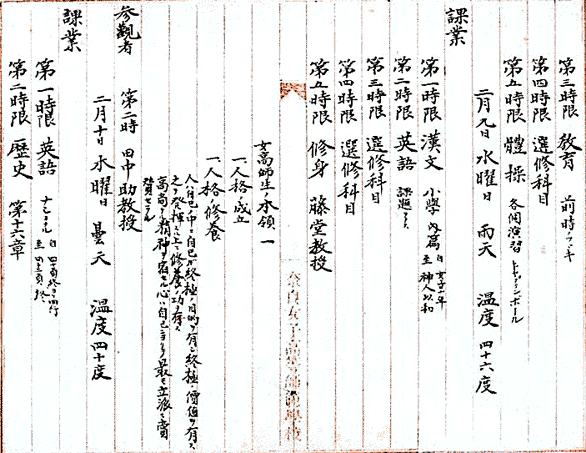 第三時限 教育 前時ノツヾキ
第四時限 選修科目
第五時限 體操 各個演習 トヤーインボール
二月九日 水曜日 雨天 溫度 四十六度
課業
第一時限 漢文 小學 內篇
至 神人以和
第二時限 英語 課題
第三時限 選修科目
第四時限 選修科目
第五時限 修身 藤堂教授
奈良女子高等師範學校
女高師生ノ本領一
一人格ノ成立
一人格ノ修養
人ハ自己ノ中ニ自己ガ終極ノ目的ヲ有シ終極ノ價値ヲ有ス
高尚ナル精神ヲ宿セル心ハ自己
參觀者 第二時 田中助教授
二月十日 木曜日 曇天 溫度 四十度
課業
第一時限 英語
第二時限 歷史 第十六章